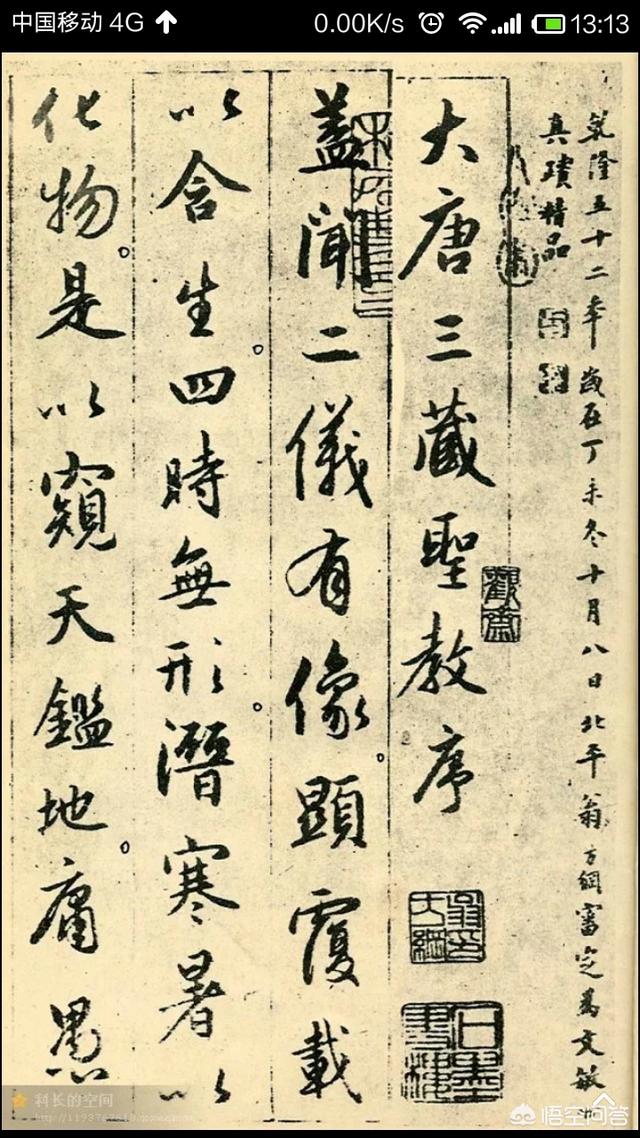 中国移动 4G 0.00K/s 13:13
乾隆五十二年歲在丁未冬十月八日北平翁方綱審定為文敏
真蹟精品
大唐三藏聖教序
蓋聞二儀有像。顯覆載
以含生。四時無形。潛寒暑以
化物。是以窺天鑑地。庸愚
科长的空间
悟空问答